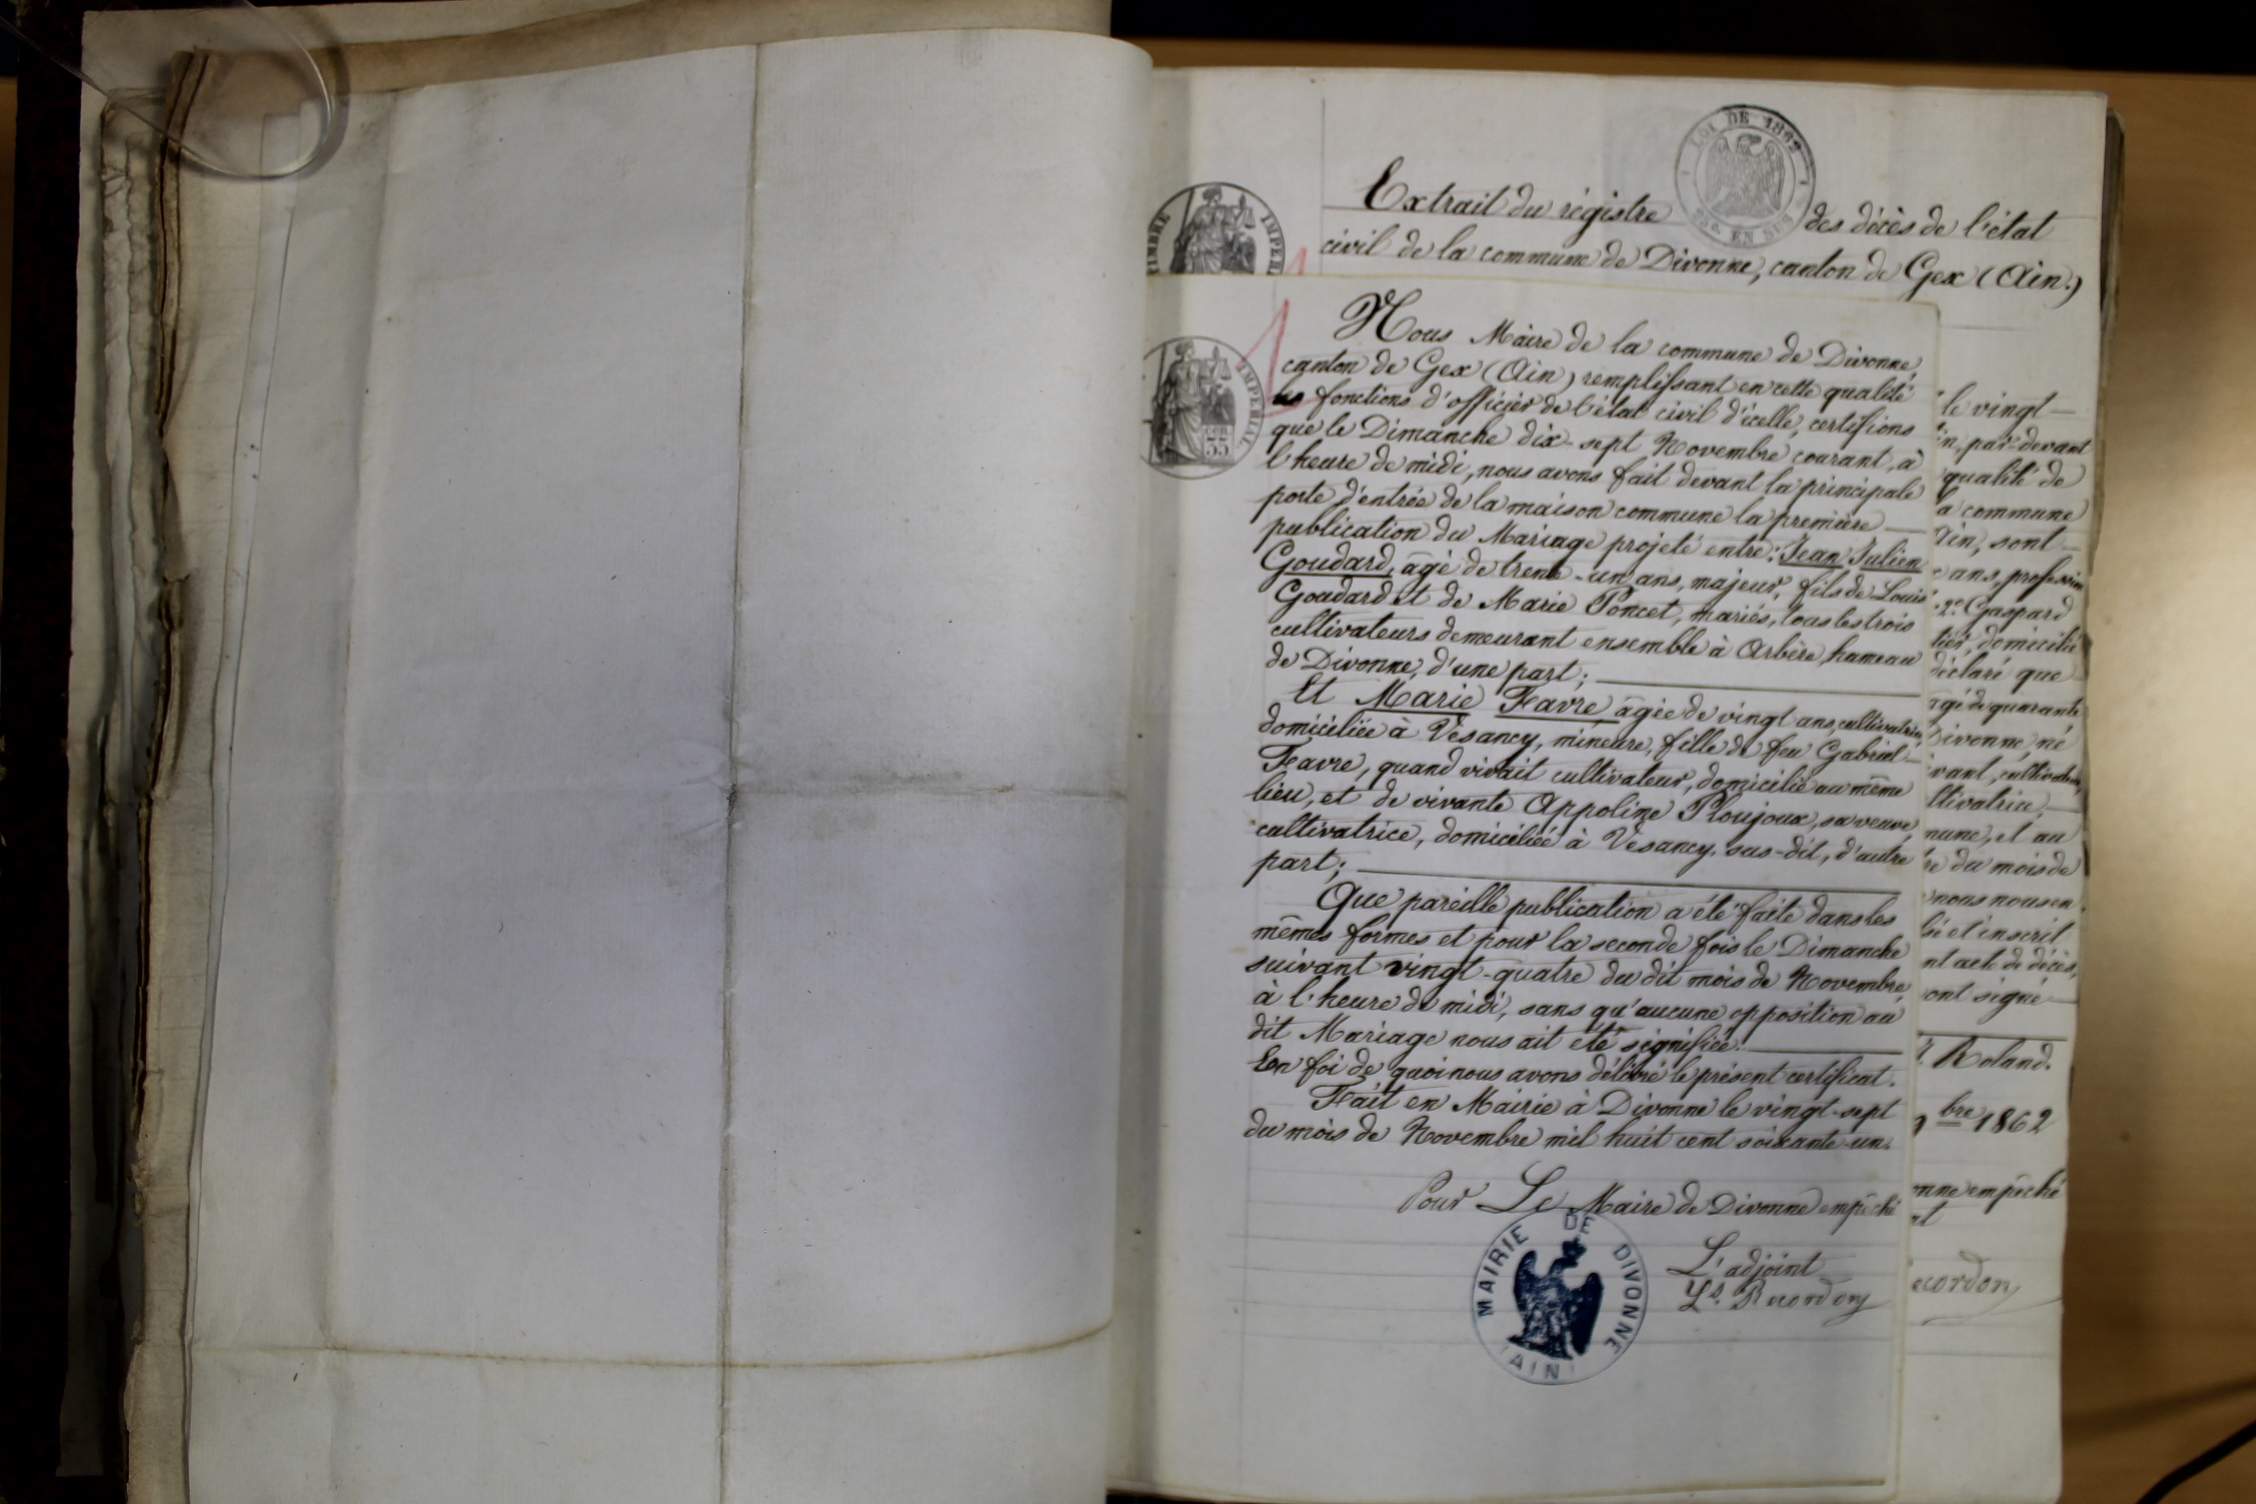 LOI DE 1862
2es. EN SUS
Extrait du régistre des décès de l'état
civil de la commune de Divonne, canton de Gex (Ain.)
TIMBRE IMPER
Nous Maire de la commune de Divonne,
canton de Gex (Ain) remplissant en cette qualité
les fonctions d'officier de l'état civil d'icelle, certifions
que le Dimanche dix-sept Novembre courant, à
l'heure de midi, nous avons fait devant la principale
porte d'entrée de la maison commune la première
publication du Mariage projeté entre: Jean Julien
Goudard, âgé de trente-un ans, majeur, fils de Louis
Goudard et de Marie Poncet, mariés, tous les trois
cultivateurs demeurant ensemble à Arbère, hameau
de Divonne, d'une part;
Et Marie Favre, âgée de vingt ans, cultivatrice,
domiciliée à Vésancy, mineure, fille de feu Gabriel
Favre, quand vivait cultivateur, domicilié au même
lieu, et de vivante Appoline Ploujoux, sa veuve,
cultivatrice, domiciliée à Vésancy, sus-dit, d'autre
part;
Que pareille publication a été faite dans les
mêmes formes et pour la seconde fois le Dimanche
suivant vingt-quatre du dit mois de Novembre,
à l'heure de midi, sans qu'aucune opposition au
dit Mariage nous ait été signifiée.
En foi de quoi nous avons délivré le présent certificat.
Fait en Mairie à Divonne le vingt-sept
du mois de Novembre mil huit cent soixante-un.
Pour Le Maire de Divonne empêché
L'adjoint
Ls. Recordon
IMPERIAL
35
MAIRIE DE DIVONNE
(AIN)
le vingt
in, par-devant
qualité de
la commune
Ain, sont
ans, profession
2° Gaspard
tier, domicilié
déclaré que
âgé de quarante
Divonne, né
vant, cultivateur,
ltivatrice,
mune, et au
re du mois de
nons nous en
sé et inscrit
nt acte de décès,
ont signé
Roland.
9bre 1862
onne empêché
nt
ecordon